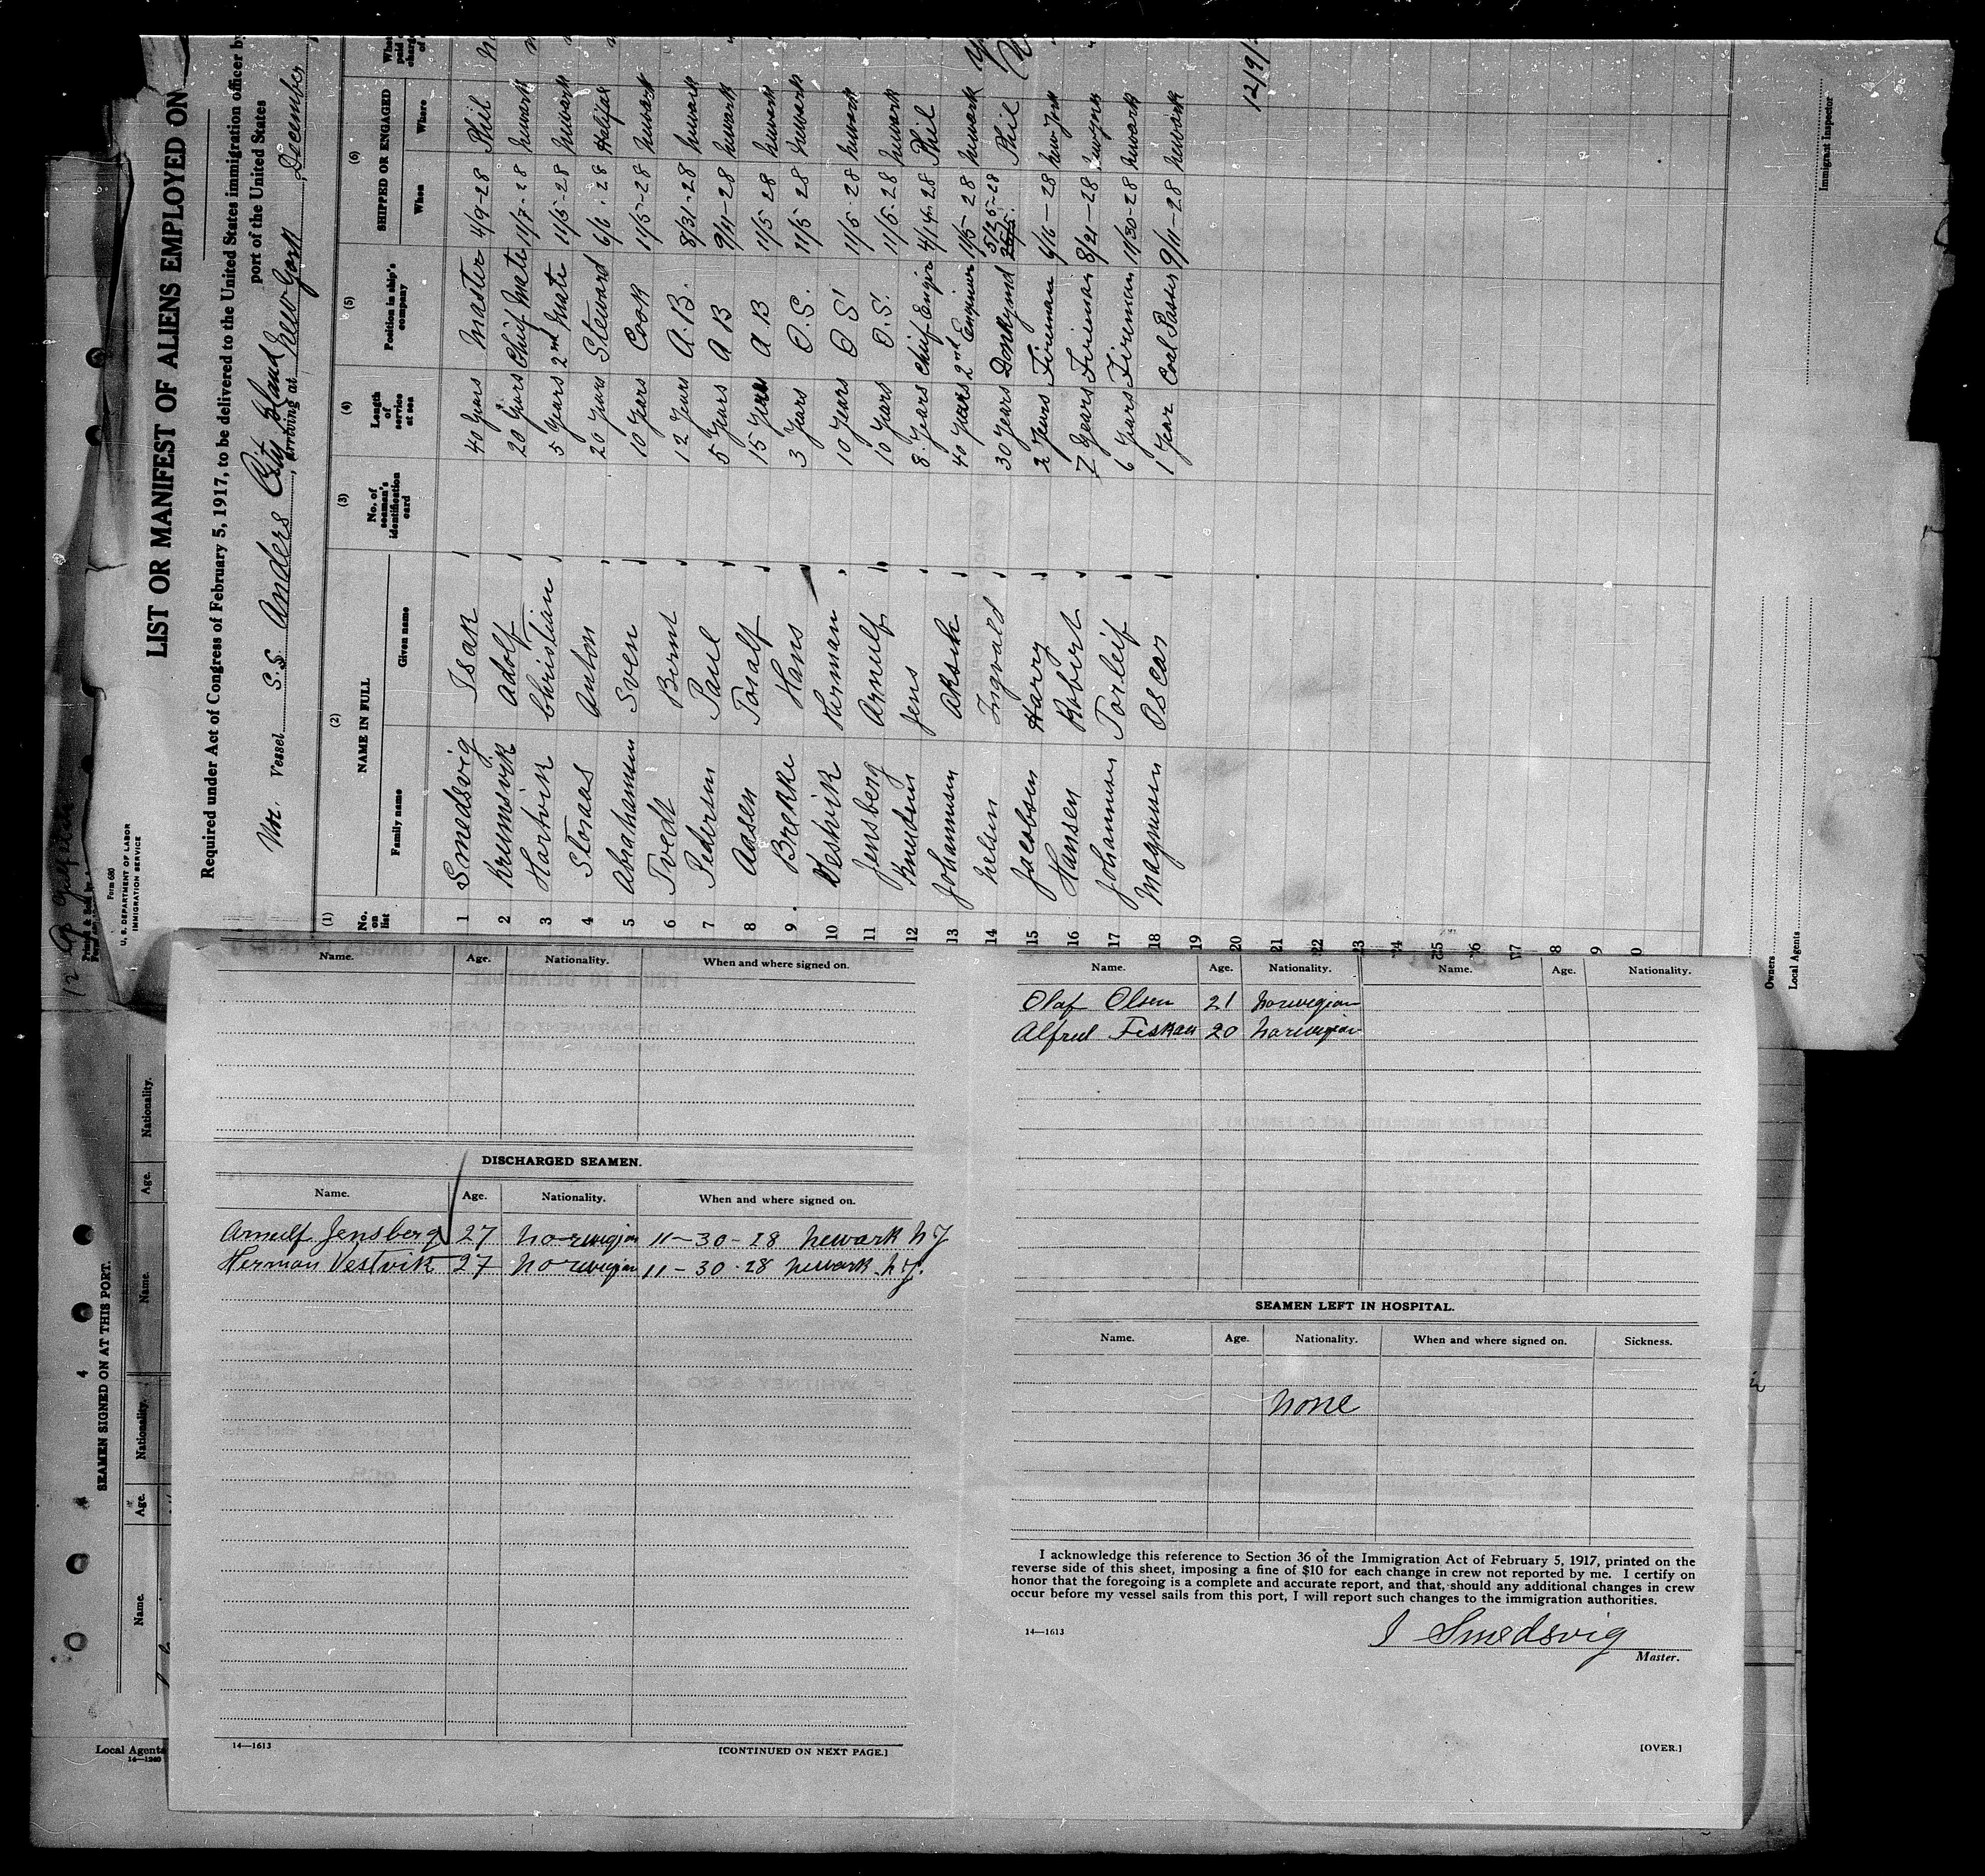 LIST OR MANIFEST OF ALIENS EMPLOYED ON
Required under Act of Congress of February 5, 1917, to be delivered to the United States immigration officer by
port of the United States
Nor. Vessel S.S. Anders City Island, arriving at New York, December
Form 680
U. S. DEPARTMENT OF LABOR
IMMIGRATION SERVICE
(1) (2) (3) (4) (5) (6)
No. on list NAME IN FULL No. of seaman's identification card Length of service at sea Position in ship's company SHIPPED OR ENGAGED
Family name Given name When Where
1 Smedsvig Isak 40 Years Master 4/9-28 Phil
2 Krumsvik Adolf 20 Years Chief Mate 11/7-28 Newark
3 Hartvik Christian 5 Years 2nd Mate 11/5-28 Newark
4 Storaas Anton 20 Years Steward 6/6-28 Halifax
5 Abrahamsen Sven 10 Years Cook 11/5-28 Newark
6 Tvedt Bernt 12 Years A.B. 8/31-28 Newark
7 Pedersen Paul 5 Years A B 9/11-28 Newark
8 Aasen Toralf 15 Years A B 11/5 28 Newark
9 Brekke Hans 3 Years O.S. 11/5 28 Newark
10 Vestvik Herman 10 Years O S 11/5-28 Newark
11 Jensberg Arnulf 10 Years O.S. 11/5-28 Newark
12 Knudsen Jens 8 Years Chief Engin 4/14-28 Phil
13 Johannesen 40 Years 2nd Engineer 11/5-28 Newark
14 Nelsen Ingvald 30 Years Donkeymd 5/25-28 Phil
15 Jacobsen Harry 2 Years Fireman 6/16-28 New York
16 Hansen Robert 7 Years Fireman 8/21-28 New York
17 Johannesen Torleif 6 Years Fireman 11/30-28 Newark
18 Magnusen Oscar 1 Year Coal Passer 9/11-28 Newark
19
20
21
22
23
24
25
26
27
8
9
0
12/9/
Immigrant Inspector
Owners
Local Agents
Name. Age. Nationality. When and where signed on.
DISCHARGED SEAMEN.
Name. Age. Nationality. When and where signed on.
Arnulf Jensberg 27 Norwegian 11-30-28 Newark NJ
Herman Vestvik 27 Norwegian 11-30-28 Newark NJ.
14—1613 [CONTINUED ON NEXT PAGE.]
Name. Age. Nationality. Name. Age. Nationality.
Olaf Olsen 21 Norwegian
Alfred Fiskan 20 Norwegian
SEAMEN LEFT IN HOSPITAL.
Name. Age. Nationality. When and where signed on. Sickness.
None
I acknowledge this reference to Section 36 of the Immigration Act of February 5, 1917, printed on the
reverse side of this sheet, imposing a fine of $10 for each change in crew not reported by me. I certify on
honor that the foregoing is a complete and accurate report, and that, should any additional changes in crew
occur before my vessel sails from this port, I will report such changes to the immigration authorities.
14—1613
I Smedsvig
Master.
[OVER.]
SEAMEN SIGNED ON AT THIS PORT.
Name. Age. Nationality. Name. Age. Nationality.
4
Local Agents
14—1240